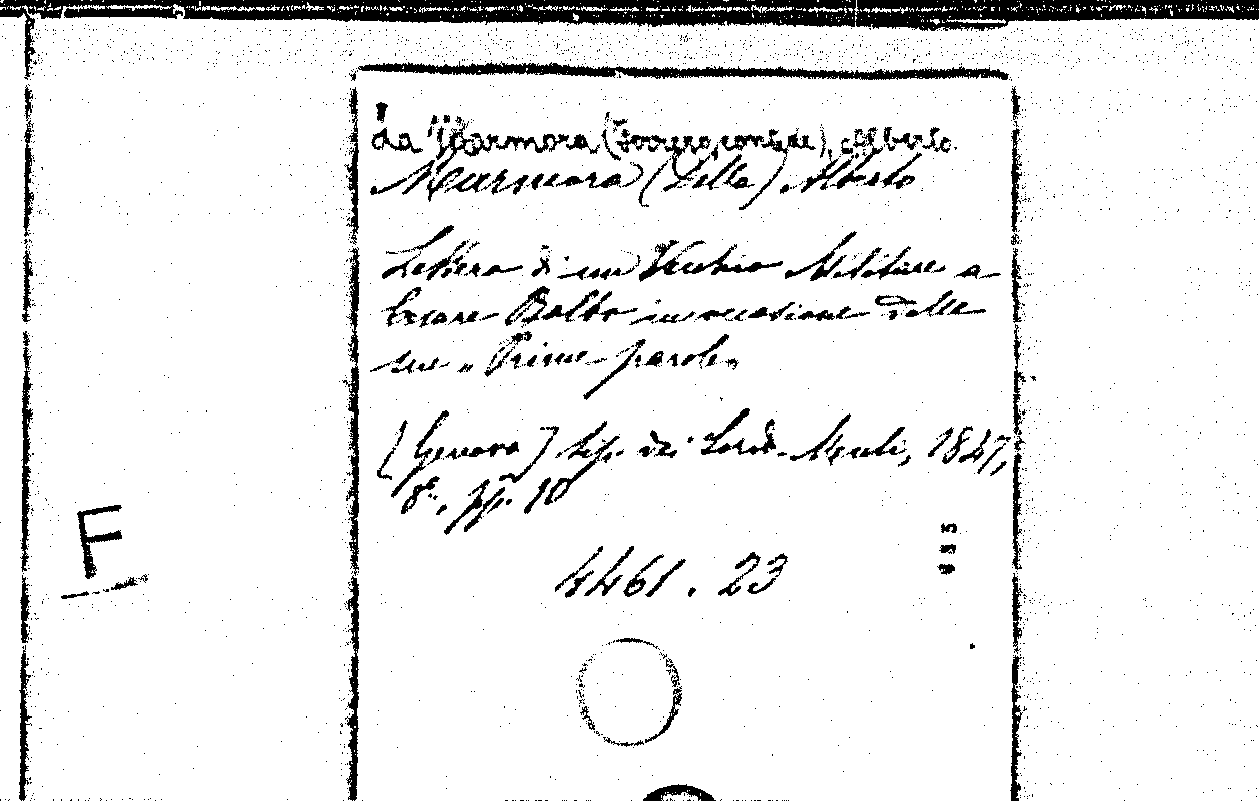 La Marmora (Ferrero, conte de), Alberto
Marmora (Della) Alberto
Lettera di un Vecchio Militare a
Cesare Balbo in occasione delle
sue „ Prime parole„
[Genova] tip. dei Sordo-Muti, 1847,
8°, pp. 10
4461 . 23
F